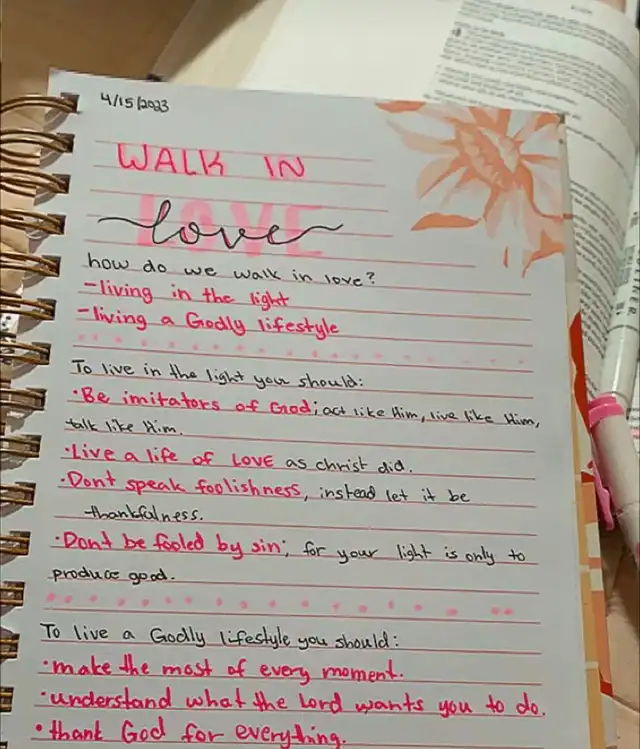 4/15/2023
WALK IN
LOVE
love
how do we walk in love?
-living in the light
-living a Godly lifestyle
To live in the light you should:
·Be imitators of God; act like Him, live like Him,
talk like Him.
·Live a life of LOVE as christ did.
·Dont speak foolishness, instead let it be
thankfulness.
·Dont be fooled by sin; for your light is only to
produce good.
To live a Godly lifestyle you should:
·make the most of every moment.
·understand what the Lord wants you to do.
·thank God for everything.